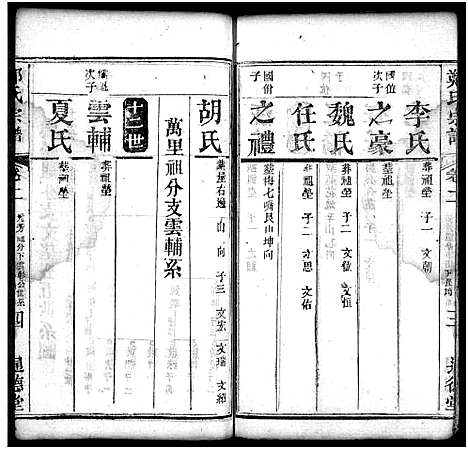 鄭氏宗譜
卷二
三
李氏
葬祖塋 子一 文朝
國值次子
之豪
葬祖塋
魏氏
葬祖塋 子二 文位 文恒
任氏
葬祖塋 子二 文思 文佑
國佾子
之禮
葬梅七嘴艮山坤向
胡氏
葬屋右邊 山 向 子三 文宏 文瑞 文經
萬里祖分支雲輔系
十二世
次子
雲輔
葬祖塋
夏氏
葬祖塋
鄭氏宗譜
卷二
四
通德堂